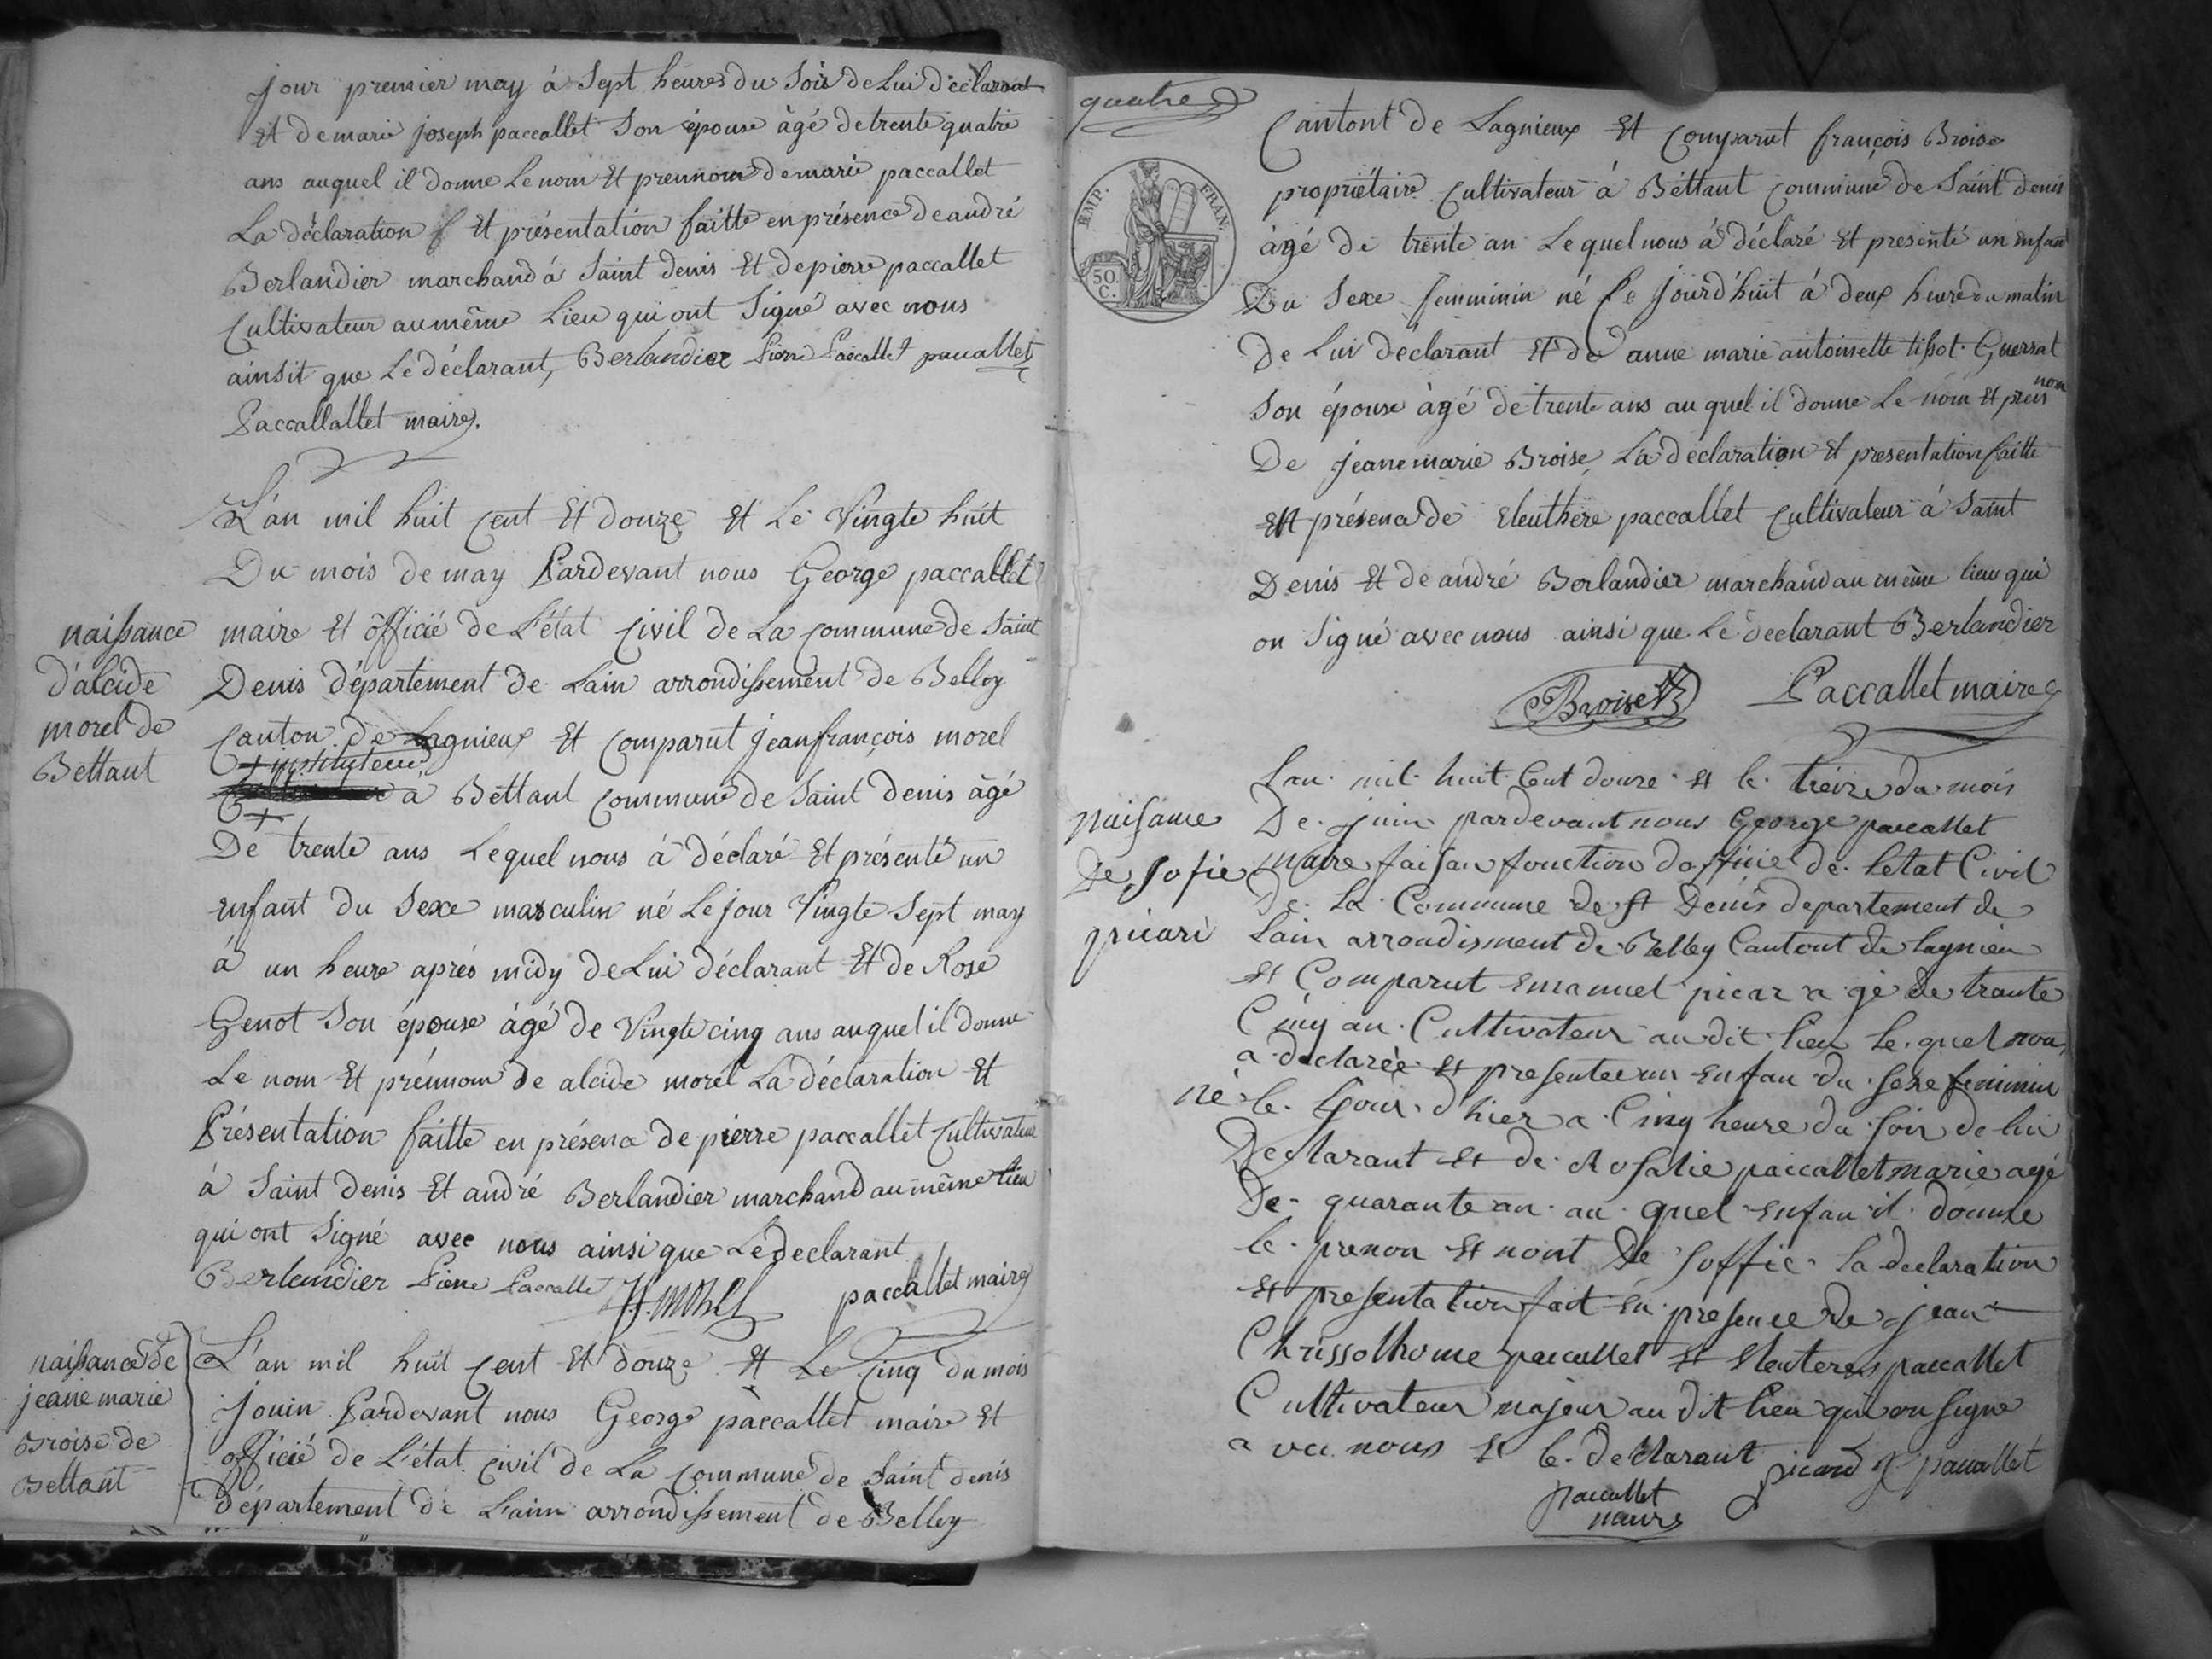 jour premier may à Sept heures du Soir de Lui déclarant
Et de marie joseph paccallet Son épouse àgé de trente quatre
ans auquel il donne Le nom Et prennom de marie paccallet
La déclaration Et présentation faitte en présence de andré
Berlandier marchand à Saint denis Et de pierre paccallet
Cultivateur au même Lieu qui ont Signé avec nous
ainsit que Le déclarant, Berlandier Pierre Paccallet paccallet
Paccallallet maire.
naissance
d'alcide
morel de
Bettant
L'an mil huit Cent Et douze Et Le Vingte huit
Du mois de may Pardevant nous George paccallet
maire Et officié de L'état Civil de La Commune de Saint
Denis département de Lain arrondissement de Belley
Canton de Lagnieux Et Comparut jean françois morel
+ instituteur
à Bettant Commune de Saint denis àgé
De trente ans Lequel nous à déclaré Et présenté un
enfant du Sexe masculin né Le jour Vingte Sept may
à un heure aprés midy de Lui déclarant Et de Rose
Genot Son épouse àgé de Vingte cinq ans auquel il donne
Le nom Et prénnom de alcide morel La déclaration Et
Présentation faitte en présence de pierre paccallet Cultivateur
à Saint denis Et andré Berlandier marchand au même Lieu
qui ont Signé avec nous ainsi que Le declarant
Berlandier Pierre Paccallet paccallet maire
naissance de
jeane marie
Broise de
Bettant
L'an mil huit Cent Et douze Et Le Cinq du mois
Jouin Pardevant nous George paccallet maire Et
officié de L'état Civil de La Commune de Saint denis
département de Lain arrondissement de Belley
quatre
EMP. FRAN.
50.
C.
Cantont de Lagnieux Et Comparut françois Broise
propriètaire Cultivateur à Béttant Commune de Saint denis
àgé de trente an Lequel nous à déclaré Et presenté un Enfan
Du Sexe femminin né Le jourd'huit à deux heure du matin
De Lui declarant Et de anne marie antoinette tissot Guerrat
Son épouse àgé de trente ans au quel il donne Le nom Et pren
nom
De jeane marie Broise La déclaration Et presentation faitte
En présence de Eleuthère paccallet Cultivateur à Saint
Denis Et de andré Berlandier marchand au même lieu qui
on Signé avec nous ainsi que Le declarant Berlandier
Broise Paccallet maire
naisance
de Sofie
picare
Lan mil huit Cent douze et le treize du mois
De juin pardevant nous George paccallet
maire faisan fonction dofficie de letat Civil
De La Commune de st Denis departement de
Lain arrondisment de Belley Cantont de lagnieu
et Comparut Emanuel picar a gé de trante
Cinq an Cultivateur au dit lieu le quel nou
a declarée et presentee un enfan du sexe feminin
né le jour dhier a Cinq heure du soir de lui
Declarant et de Rosalie paccallet marie agé
De quarante an au quel enfan il donne
le prenon et nont de soffie la declaration
et presentation fait en presence de jean
Chrissolhome paccallet et Eleuteres paccallet
Cultivateur majeur au dit lieu qui on signe
avec nous et le declarant picard paccallet
paccallet
maire